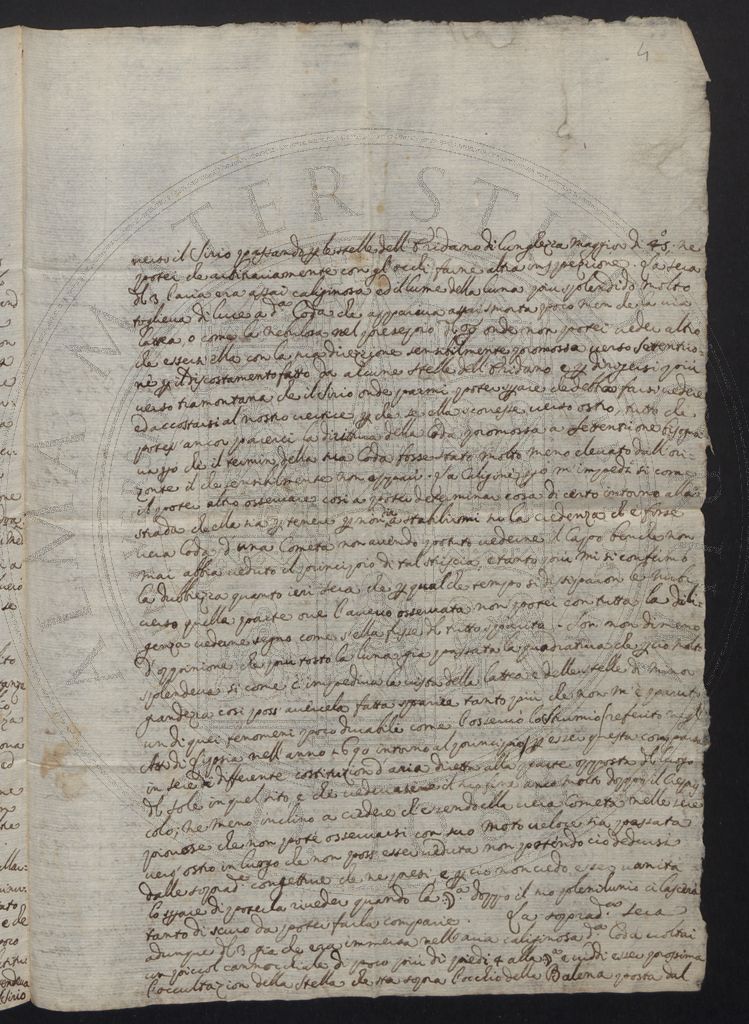 4
verso il Sirio passando p le stelle dell'Eridano di lunghezza maggior di 40. ne
potei che arbitrariamente con gl'occhi farne altra inspezione. La sera
di 3 l'aria era assai caliginosa ed il lume della luna più splendido molto
toglieva di luce a d.a Coda che appariva assai smorta poco men che la via
lattea, o come la nebulosa nel presepio di onde non potei veder altro
che essersi ella con la sua direzione sensibilmente promossa verso Setentrio-
ne p il discostamento fatto da alcune stelle dell'Eridano e p drizzarsi più
verso tramontana che il Sirio onde parmi poter sperare che debba farsi vedere
ed accostarsi al nostro vertice p che se ella corresse verso ostro, tutto che
potesse ancor parerci la dirittura della Coda promossa a Setentrione bisogna
che il termin della sua Coda fosse stato molto meno elevato dall'ori-
zonte il che sensibilmente non apparì. La Caligine m'impedì sì come
il poter altro osservare così a poter determinar cosa di certo intorno alla
strada che ella sia p tenere p non stabilirmi su la credenza che forse
vera Coda d'una Cometa non avendo potuto vederne il Capo benche non
mai abbia veduto il principio di tal striscia, e tanto più mi si confermò
la dubbiezza quanto ieri sera che p qualche tempo si disparirono le nuvole
verso quella parte ove l'avevo osservata non potei con tutta la dili-
genza vederne segno come s'ella fosse del tutto sparita. Son non di meno
d'oppinione che più tosto la luna già passata la quadratura che p ciò molto
splendeva sì come c'impediva la vista della lattea e delle stelle di minor
grandezza così poss' avercela fatta sparire tanto più che non m'è paruta
un di quei fenomeni poco durabile come l'osservò lo Sturmio referito negl'
Atti di Lipsia nell'anno 1690 intorno al principio p esser questa comparsa
in sere di differente costituzion d'aria diretta alla parte opposta del luogo
del Sole in quel sito e che vedevasene il dì anco molto doppo il Crepus-
colo; ne meno inclino a credere che essendo ella vera Cometa nelle sere
piovose che non potè osservarsi con suo moto veloce sia passata
vers' ostro in luogo che non poss' esser veduta non potendo ciò dedursi
dalle soprad.e congetture che ne presi e p ciò non credo esser vanità
lo sperar di poterla riveder quando la ☽a doppo il suo plenilunio ci lascerà
tanto di scuro da poter farla comparire. La soprad.a sera
adunque di 3 già che era immersa nell'aria caliginosa d.a Coda voltai
un piccol cannocchiale di poco più di piedi 4 alla ☽a e viddi esser prossima
l'occultazion della stella che sta sopra l'occhio della Balena posta dal